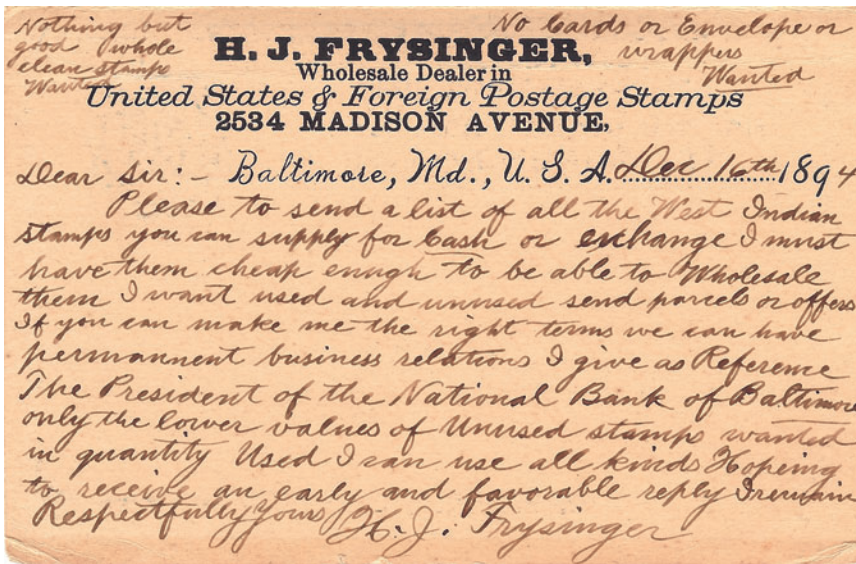 Nothing but
good whole
clean stamps
Wanted
No Cards or Envelope or
wrappers
Wanted
H. J. FRYSINGER,
Wholesale Dealer in
United States & Foreign Postage Stamps
2534 MADISON AVENUE,
Dear Sir:- Baltimore, Md., U. S. A. Dec 16th 1894
Please to send a list of all the West Indian
stamps you can supply for Cash or exchange I must
have them cheap enugh to be able to Wholesale
them I want used and unused send parcels or offers
If you can make me the right terms we can have
permannent business relations I give as Reference
The President of the National Bank of Baltimore
only the lower values of Unused stamps wanted
in quantity Used I can use all kinds Hopeing
to receive an early and favorable reply I remain
Respectfully Yours H. J. Frysinger